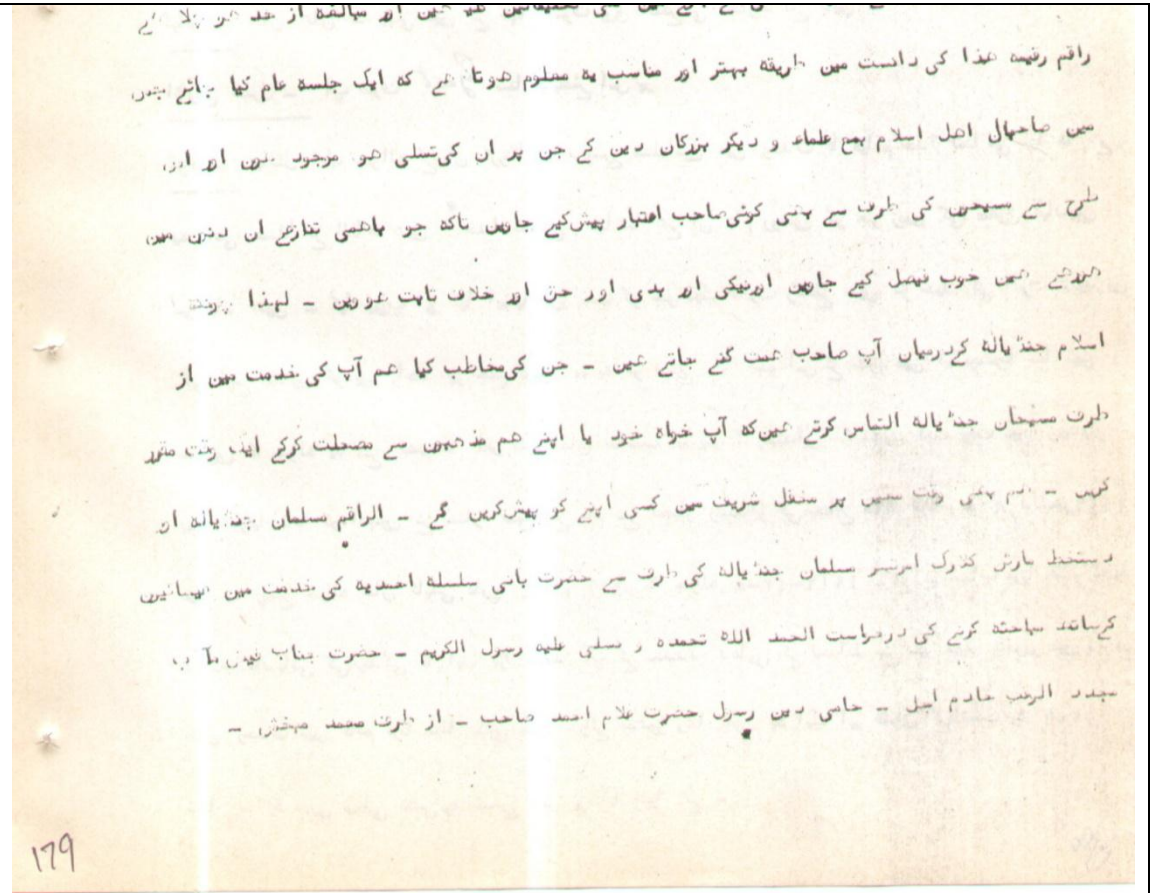 کی تحقیقاتیں اور مباحثہ از حد
راقم رقیمہ ھذا کی دانست میں طریقہ بہتر اور مناسب یہ معلوم ھوتا ھے کہ ایک جلسہ عام کیا جائے
میں صاحبان اھل اسلام بمع علماء و دیگر بزرگان دین کے جن پر ان کی تسلی ھو موجود ھوں اور
طرح سے مسیحوں کی طرف سے بھی کوئی صاحب اعتبار پیش کیے جاویں تاکہ جو باھمی تنازعے ان دنوں میں
ھیں خوب فیصل کیے جاویں اور نیکی اور بدی اور حق اور خلاف ثابت ھوویں ۔ لہذا
اسلام جنڈیالہ کے درمیان آپ صاحب گنے جاتے ھیں ۔ جن کی مخاطب کیا ھم آپ کی خدمت میں از
طرف مسیحان جنڈیالہ التماس کرتے ھیں کہ آپ خواہ خود یا اپنے ھم مذھبوں سے مصلحت کرکے ایک وقت مقرر
کریں ۔ ھم بھی وقت پر محفل شریف میں کسی اپنے کو پیش کریں گے ۔ الراقم مسلمان جنڈیالہ
دستخط مارٹن کلارک امرتسر مسلمان جنڈیالہ کی طرف سے حضرت بانی سلسلہ احمدیہ کی خدمت میں عیسائیوں
کے ساتھ مباحثہ کرنے کی درخواست الحمد اللہ نحمدہ و نصلی علیہ رسول الکریم ۔ حضرت جناب فیض مآب
مجدد الوقت خادم ۔ حامی دین رسول حضرت غلام احمد صاحب ۔ از طرف محمد ۔
179